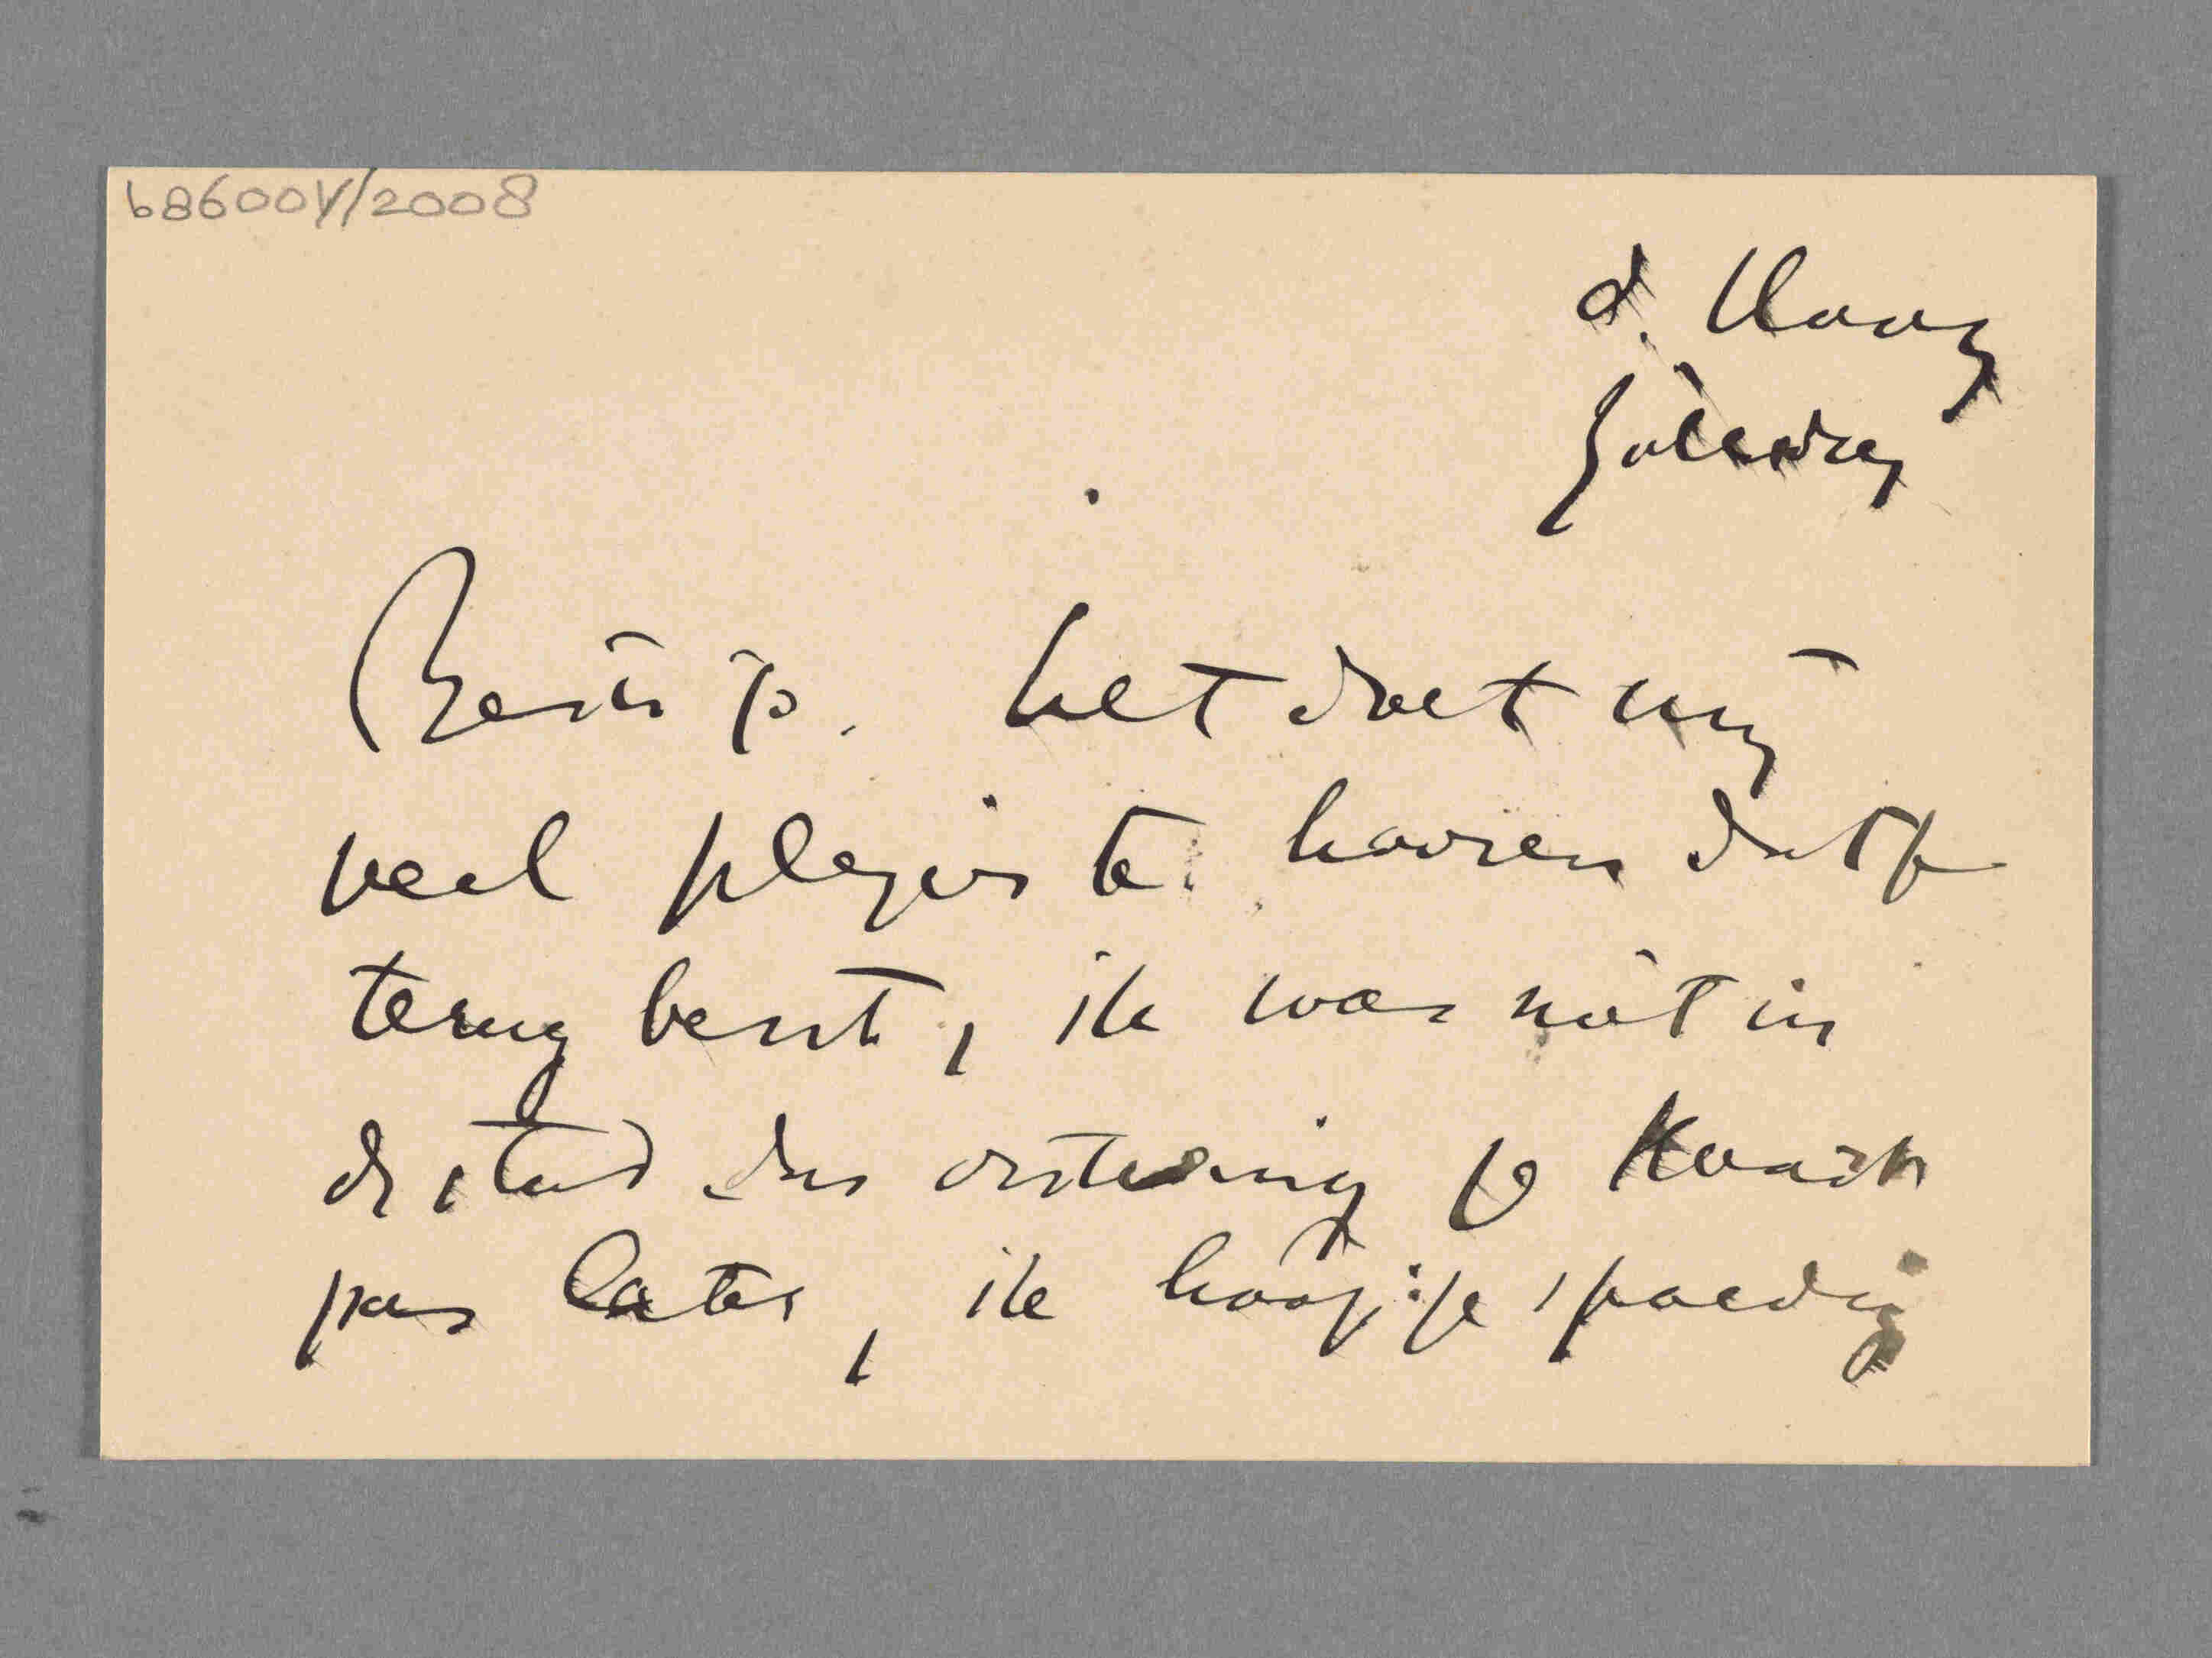 b8600V/2008
d. Haag
Beste Jo. het doet mij
veel plezier te hooren dat je
terug bent, ik was niet in
de stad dus ontving je kaart
pas later, ik hoop je spoedig